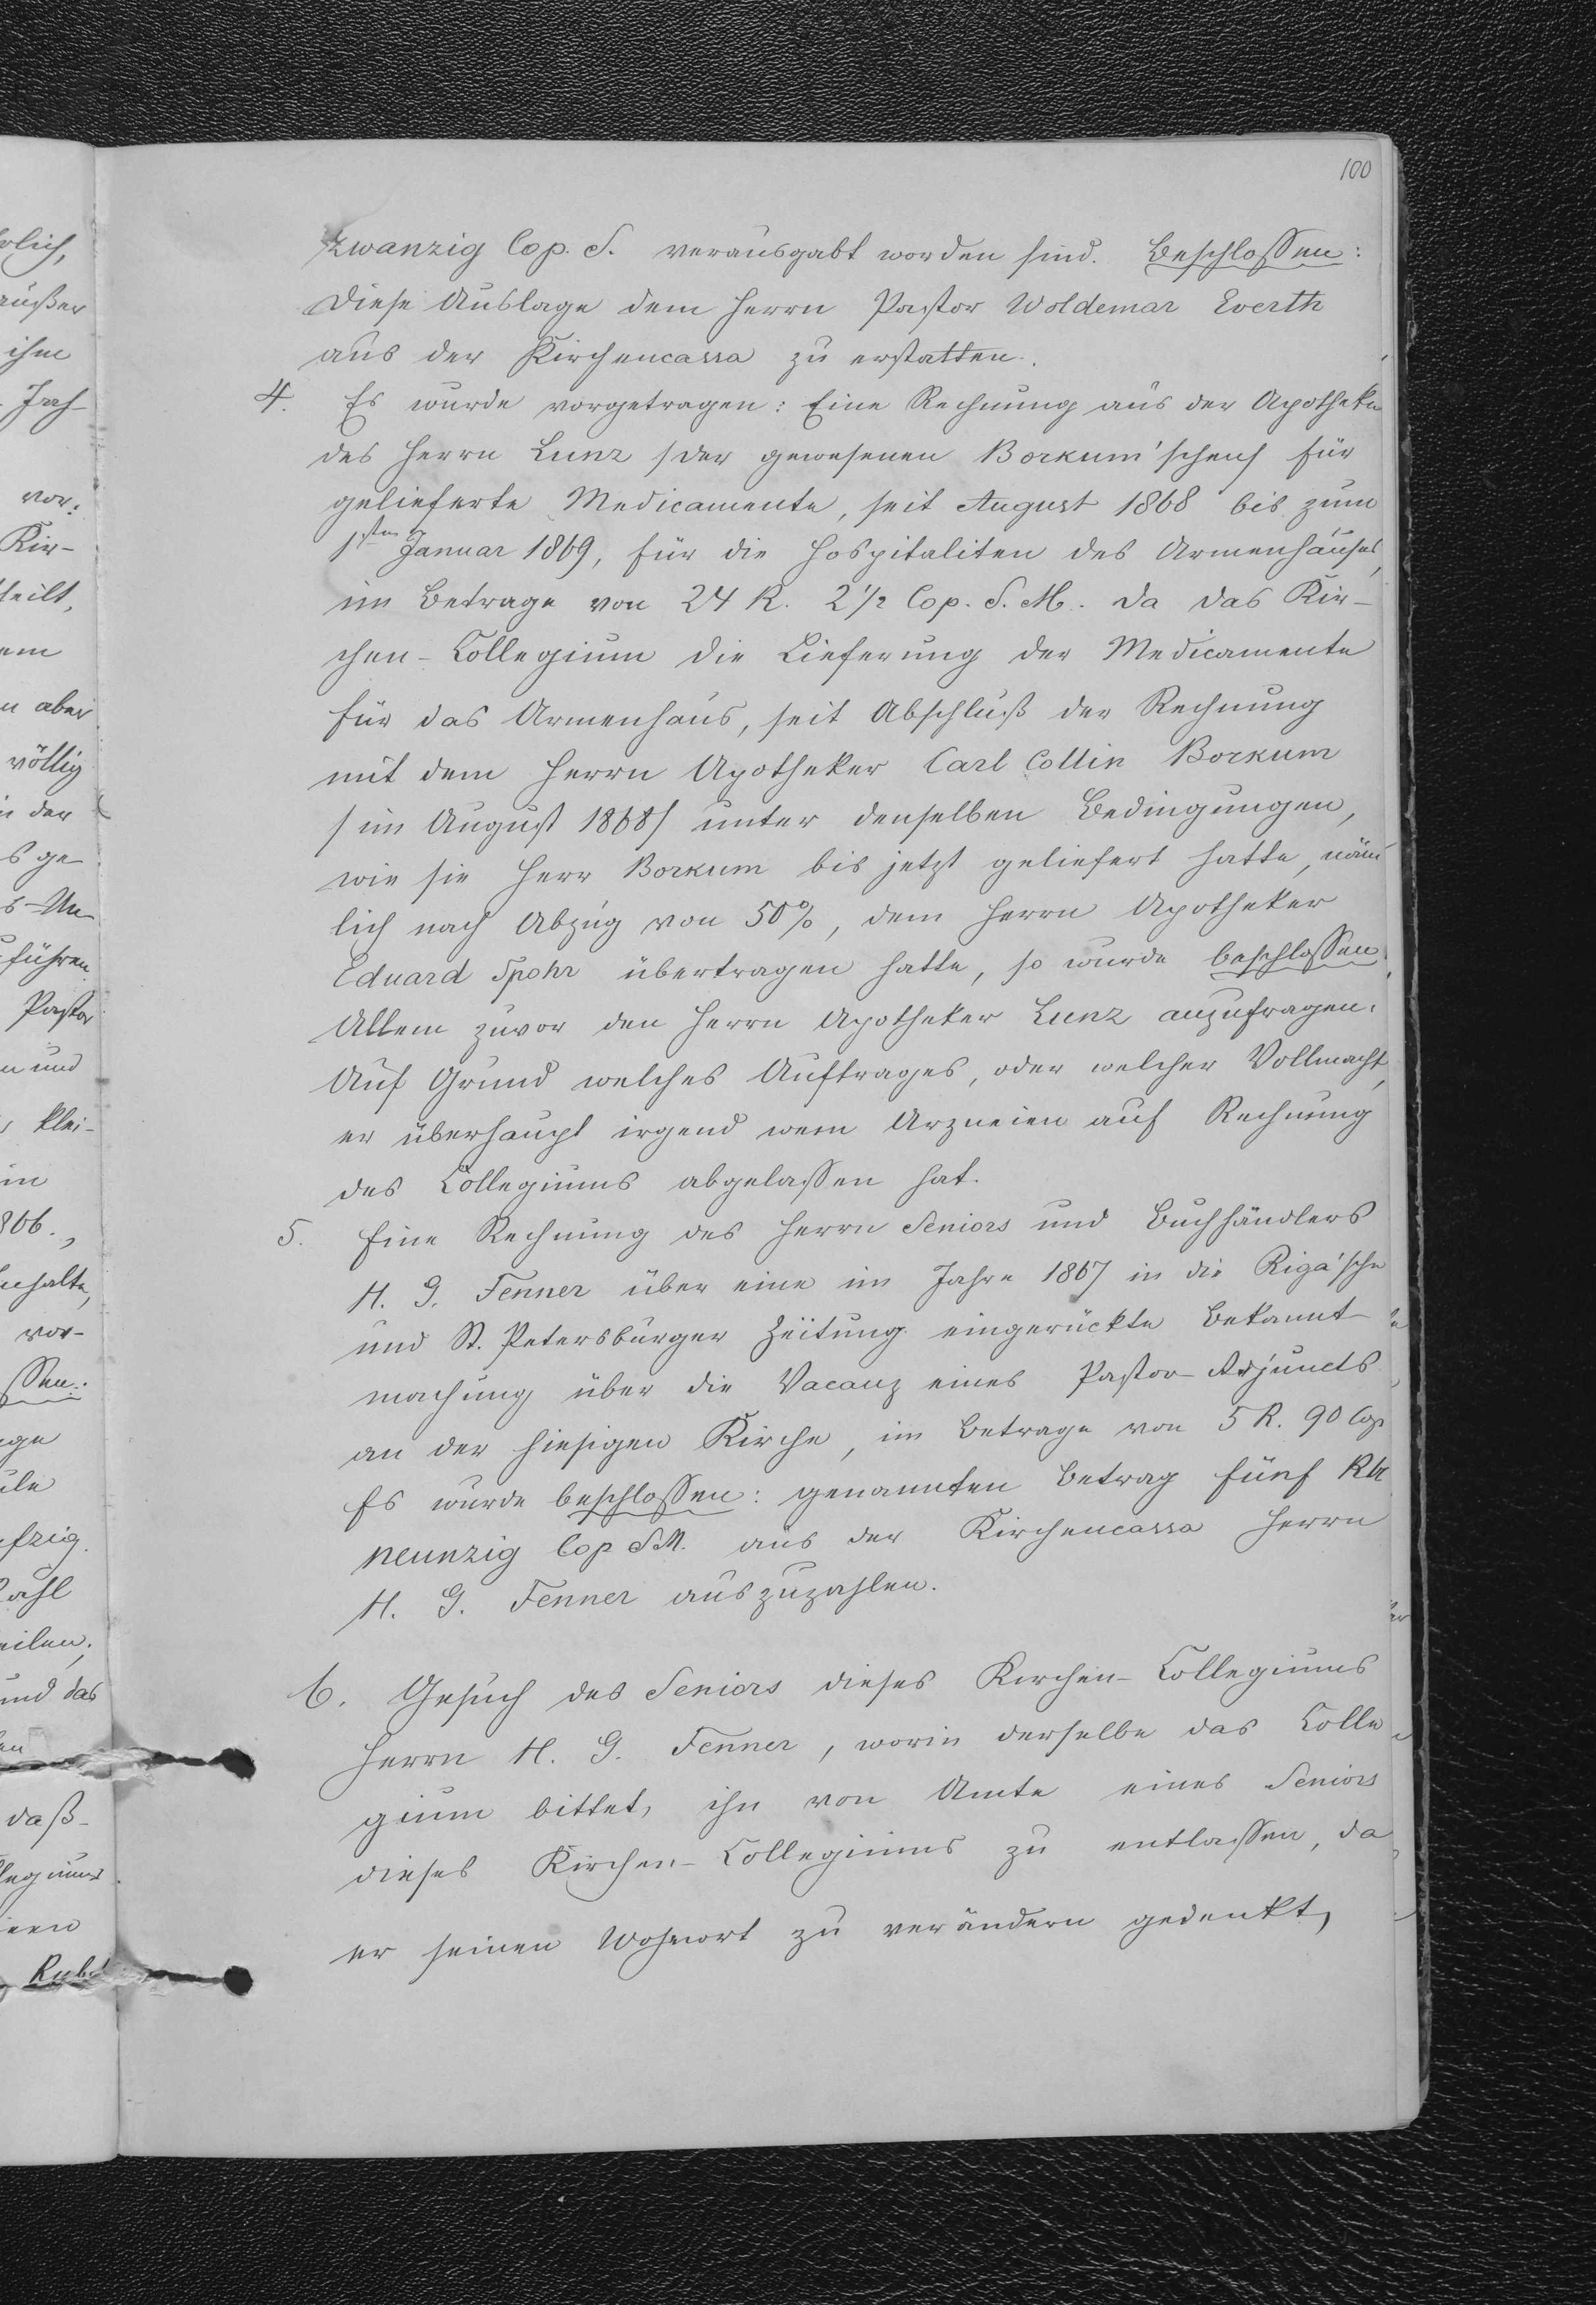 100
zwanzig Cop. S. verausgabt worden sind. Beschlossen:
Diese Auslage dem Herrn Pastor Woldemar Everth
aus der Kirchencassa zu erstatten.
4. Es wurde vorgetragen: Eine Rechnung aus der Apotheke
des Herrn Lunz /der gewesenen Borkum'schen/ für
gelieferte Medicamente, seit August 1868 bis zum
1sten Januar 1869, für die Hospitaliten des Armenhauses,
im Betrage von 24 R. 2 1/2 Cop. S. M. Da das Kir-
chen-Collegium die Lieferung der Medicamente
für das Armenhaus, seit Abschluß der Rechnung
mit dem Herrn Apotheker Carl Collin Borkum
/im August 1868/ unter denselben Bedingungen,
wie sie Herr Borkum bis jetzt geliefert hatte, näm
lich nach Abzug von 50%, dem Herrn Apotheker
Eduard Spohr übertragen hatte, so wurde beschlossen:
Allem zuvor den Herrn Apotheker Lunz anzufragen:
Auf Grund welches Auftrages, oder welcher Vollmacht,
er überhaupt irgend wem Arzneien auf Rechnung
des Collegiums abgelassen hat.
5. Eine Rechnung des Herrn Seniors und Buchhändlers
H. G. Fenner über eine im Jahre 1867 in die Riga'sche
und St. Petersburger Zeitung eingerückte Bekannt-
machung über die Vacanz eines Pastor-Adjuncts
an der hiesigen Kirche, im Betrage von 5 R. 90 Cop
Es wurde beschlossen: genannten Betrag fünf Rbl
neunzig Cop S.M. aus der Kirchencassa Herrn
H. G. Fenner auszuzahlen.
6. Gesuch des Seniors dieses Kirchen-Collegiums
Herrn H. G. Fenner, worin derselbe das Colle
gium bittet, ihn von Amte eines Seniors
dieses Kirchen-Collegiums zu entlassen, da
er seinen Wohnort zu verändern gedenkt,